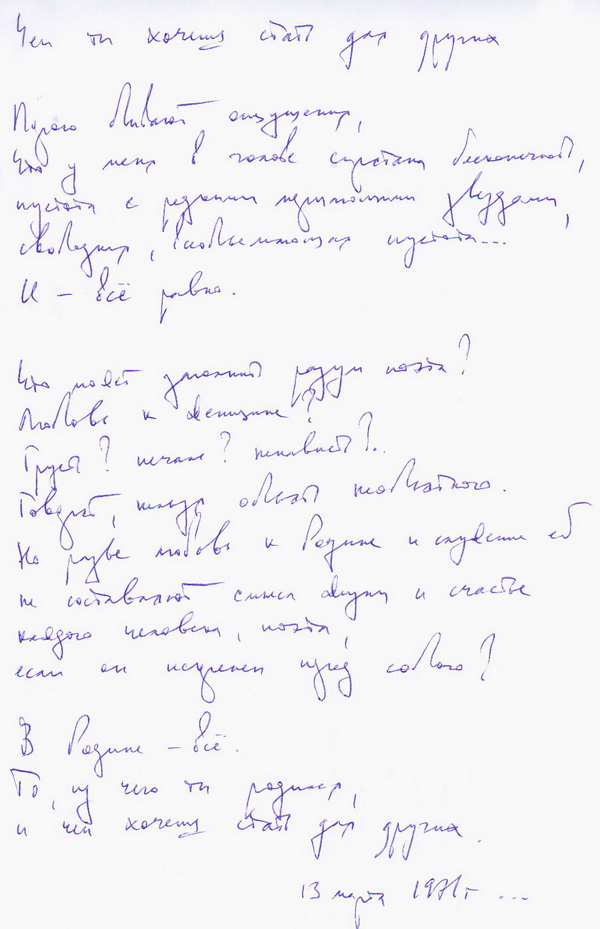 Чем ты хочешь стать для других
Порою бывают ощущения,
что у меня в голове спрятана бесконечность,
пустота с редкими мерцающими звездами,
свободная, всеобъемлющая пустота...
И – всё равно.
Что может заполнить разум поэта?
Любовь к женщине?
Грусть? печаль? ненависть?..
Говорят, нельзя объять необъятного.
Но разве любовь к Родине и служение ей
не составляют смысл жизни и счастье
каждого человека, поэта,
если он искренен пред собою?
В Родине – всё.
То, из чего ты родился,
и чем хочешь стать для других.
13 марта 1971г ...